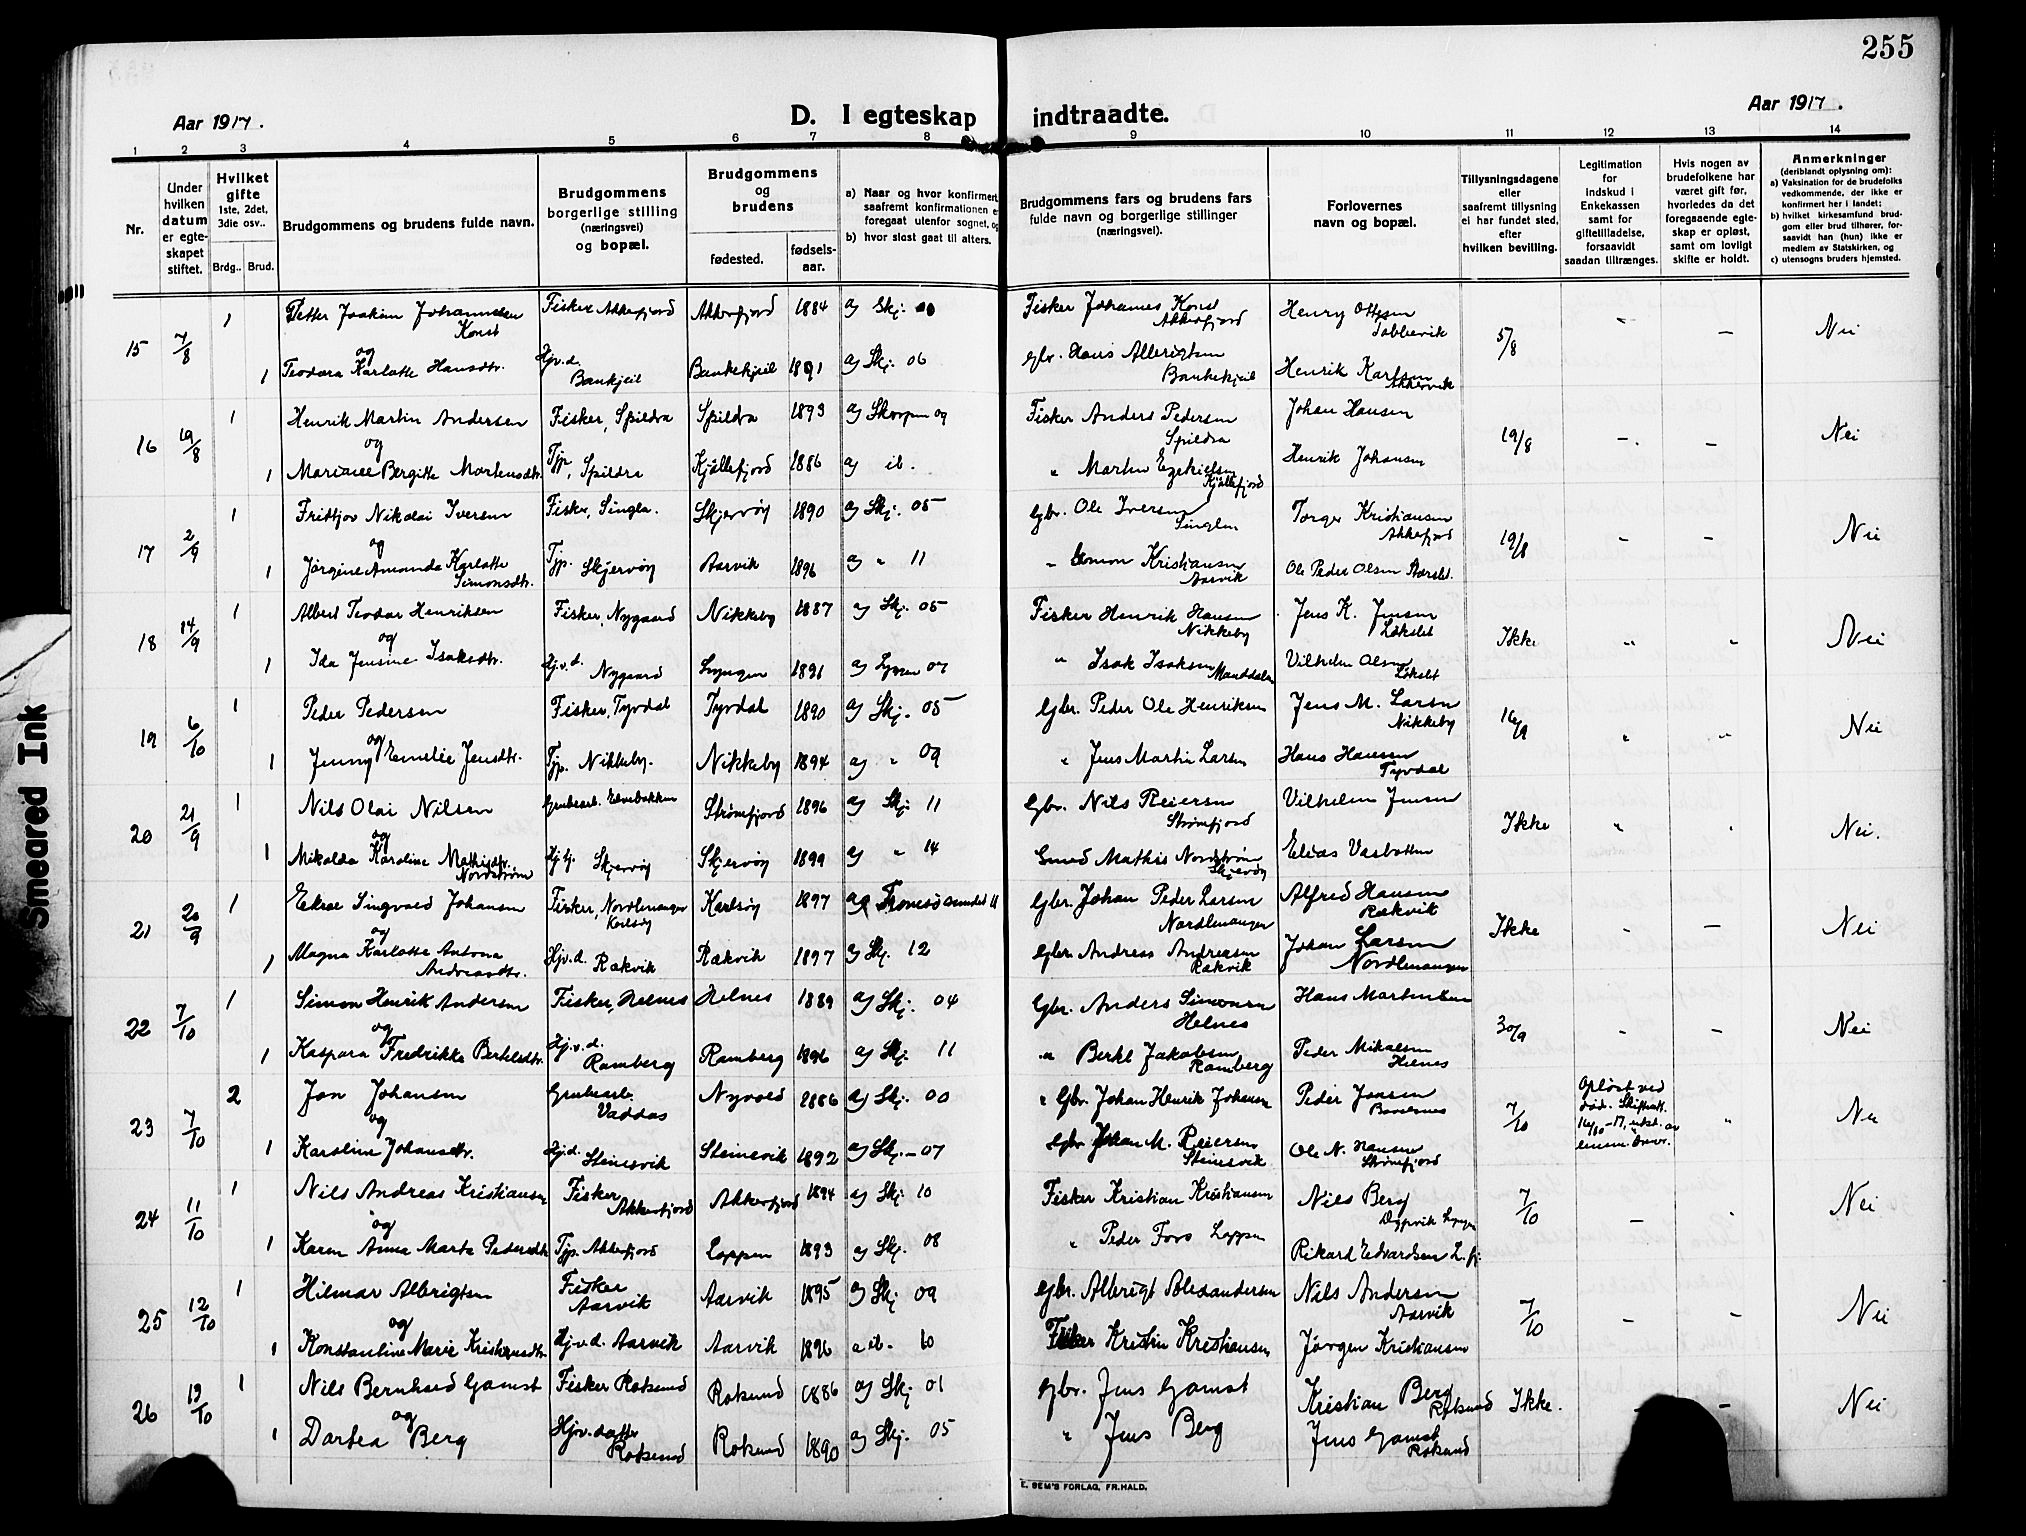 255
Aar 1917.
D. I egteskap indtraadte.
Aar 1917.
1 2 3 4 5 6 7 8 9 10 11 12 13 14
Nr.
Under hvilken datum er egte- skapet stiftet.
Hvilket gifte 1ste, 2det, 3die osv..
Brdg.. Brud.
Brudgommens og brudens fulde navn.
Brudgommens borgerlige stilling (næringsvei) og bopæl.
Brudgommens og brudens
fødested. fødsels- aar.
a) Naar og hvor konfirmert, saafremt konfirmationen e foregaat utenfor sognet, og
b) hvor sidst gaat til alters.
Brudgommens fars og brudens fars fulde navn og borgerlige stillinger (næringsvei).
Forlovernes navn og bopæl.
Tillysningsdagene eller saafremt tillysning ei har fundet sted, efter hvilken bevilling.
Legitimation for indskud i Enkekassen samt for giftetilladelse, forsaavidt saadan tiltrænges.
Hvis nogen av brudefolkene har været gift før, hvorledes da det foregaaende egte- skap er opløst, samt om lovligt skifte er holdt.
Anmerkninger (deriblandt oplysning om):
a) Vaksination for de brudefolks vedkommende, der ikke er konfirmert her i landet;
b) hvilket kirkesamfund brud- gom eller brud tilhører, for- saavidt han (hun) ikke er medlem av Statskirken, og
c) utensogns bruders hjemsted.
15 7/8 1 Petter Joakim Johannesen Konst Fisker Akkarfjord Akkarfjord 1884 a) Skj. Fisker Johannes Konst Akkarfjord Henry Ottesen 5/8 - Nei
og
1 Teodora Karlotte Hansdtr. Hjv.d. Bankjeil Bankekjeil 1891 a) Skj. 06 Gbr. Hans Albrigtsen Bankekjeil Henrik Karlsen Akkarvik
16 19/8 1 Henrik Martin Andersen Fisker, Spildra Spildra 1893 a) Skorpen 09 Fisker Anders Pedersen Spildra Johan Hansen 19/8 - - Nei
og
1 Bergitte Mortensdtr. Tjp, Spildra Kjöllefjord 1886 a) ib. " Martin Ezekielsen Kjöllefjord Henrik Johansen
17 2/9 1 Fridtjov Nikolai Iversen Fisker, Singla. Skjervöy 1890 a) Skj. 05 Gbr. Ole Iversen Singlen Torger Kristiansen Akkarfjord 19/8 - - Nei
og
1 Jørgine Amanda Karlotte Simonsdtr. Tjp. Skjervöy Aarvik 1896 a) " 11 " Simon Kristiansen Aarvik Ole Peder Olsen
18 14/9 1 Albert Teodor Henriksen Fisker, Nygaard Nikkeby 1887 a) Skj. 05 Fisker Henrik Hansen Nikkeby Jens K. Jensen Løkslet Ikke " " Nei
og
1 Ida Jensine Isaksdtr. Hj.v.d. Nygaard Lyngen 1891 a) Lyngen 07 " Isak Isaksen Manddalen Vilhelm Olsen Løkslet
19 6/10 1 Peder Pedersen Fisker, Tyvdal Tyvdal 1890 a) Skj. 05 Gbr. Peder Ole Henriksen Jens M. Larsen Nikkeby 16/9 " " Nei
og
1 Jenny Emelie Jensdtr. Tjp. Nikkeby. Nikkeby 1894 a) " 09 " Jens Martin Larsen Hans Hansen Tyvdal
20 21/9 1 Nils Olai Nilsen Grubearb. Elvebakken Strömfjord 1896 a) Skj. 11 Gbr. Nils Reiersen Strömfjord Vilhelm Jensen Ikke " . Nei.
og
1 Mikalda Karoline Mathisdtr. Nordström Skjervöy Skjervöy 1899 a) " 14 Smed Mathis Nordström Skjervöy Elias Vasbotten
21 20/9 1 Singvald Johansen Fisker, Nordlenangen Karlsöy Karlsöy 1897 a) Tromsösundet 11 Gbr. Johan Peder Larsen Nordlenangen Alfred Hansen Rakvik Ikke - - Nei
og
1 Magna Karlotte Antona Andreasdtr. Hjv.d. Rakvik Rakvik 1897 a) Skj. 12 Gbr. Andreas Andreasen Rakvik Johan Larsen Nordlenangen
22 7/10 1 Simon Henrik Andersen Fisker, Helnes Helnes 1889 a) Skj. 04 Gbr. Anders Simonsen Helnes Hans Martinsen 30/9 - - Nei
og
1 Kaspara Fredrikke Berteldtr. Hj.v.d. Ramberg Ramberg 1896 a) Skj. 11 " Bertel Jakobsen Ramberg Peder Mikalsen Helnes
23 7/10 2 Jon Johansen Grubearb. Vaddas Nyvold 1886 a) Skj. 00 " Gbr. Johan Henrik Johansen Peder Jonsen 7/10 Opløst ved død. Skifteatt. 16/10-17, " Nei
og
1 Karoline Johansdtr. Hj.d. Steinsvik Steinsvik 1892 a) Skj. - 07 Gbr. Johan M. Reiersen Steinsvik Ole N. Hansen Strömfjord
24 11/10 1 Nils Andreas Kristiansen Fisker Akkarfjord Akkarfjord 1894 a) Skj. 10 Fisker Kristian Kristiansen Nils Berg Lyngen 7/10 - . Nei
og
1 Karen Anna Marta Pedersdtr. Tjp. Akkarfjord Loppen 1893 a) Skj. 08 " Peder Fors Loppen Rikard Edvardsen L.fj.
25 12/10 1 Hilmar Albrigtsen Fisker Aarvik Aarvik 1895 a) Skj. 09 Gbr. Albrigt Aleksandersen Nils Andersen Aarvik 7/10 - - Nei
og
1 Konstantine Marie Kristiansdtr. Hj.v.d. Aarvik Aarvik 1896 a ib. 10 Fisker Kristian Kristiansen Jörgen Kristiansen
26 19/10 1 Nils Bernhard Gamst Fisker Rotsund Rotsund 1886 a) Skj. 01 Gbr. Jens Gamst Kristian Berg Rotsund Ikke. - - Nei
og
1 Dortea Berg Hjv. datter Rotsund Rotsund 1890 a) Skj. 05 " Jens Berg Jens Gamst Rotsund
E. SEM'S FORLAG, FR.HALD.
Smeared Ink